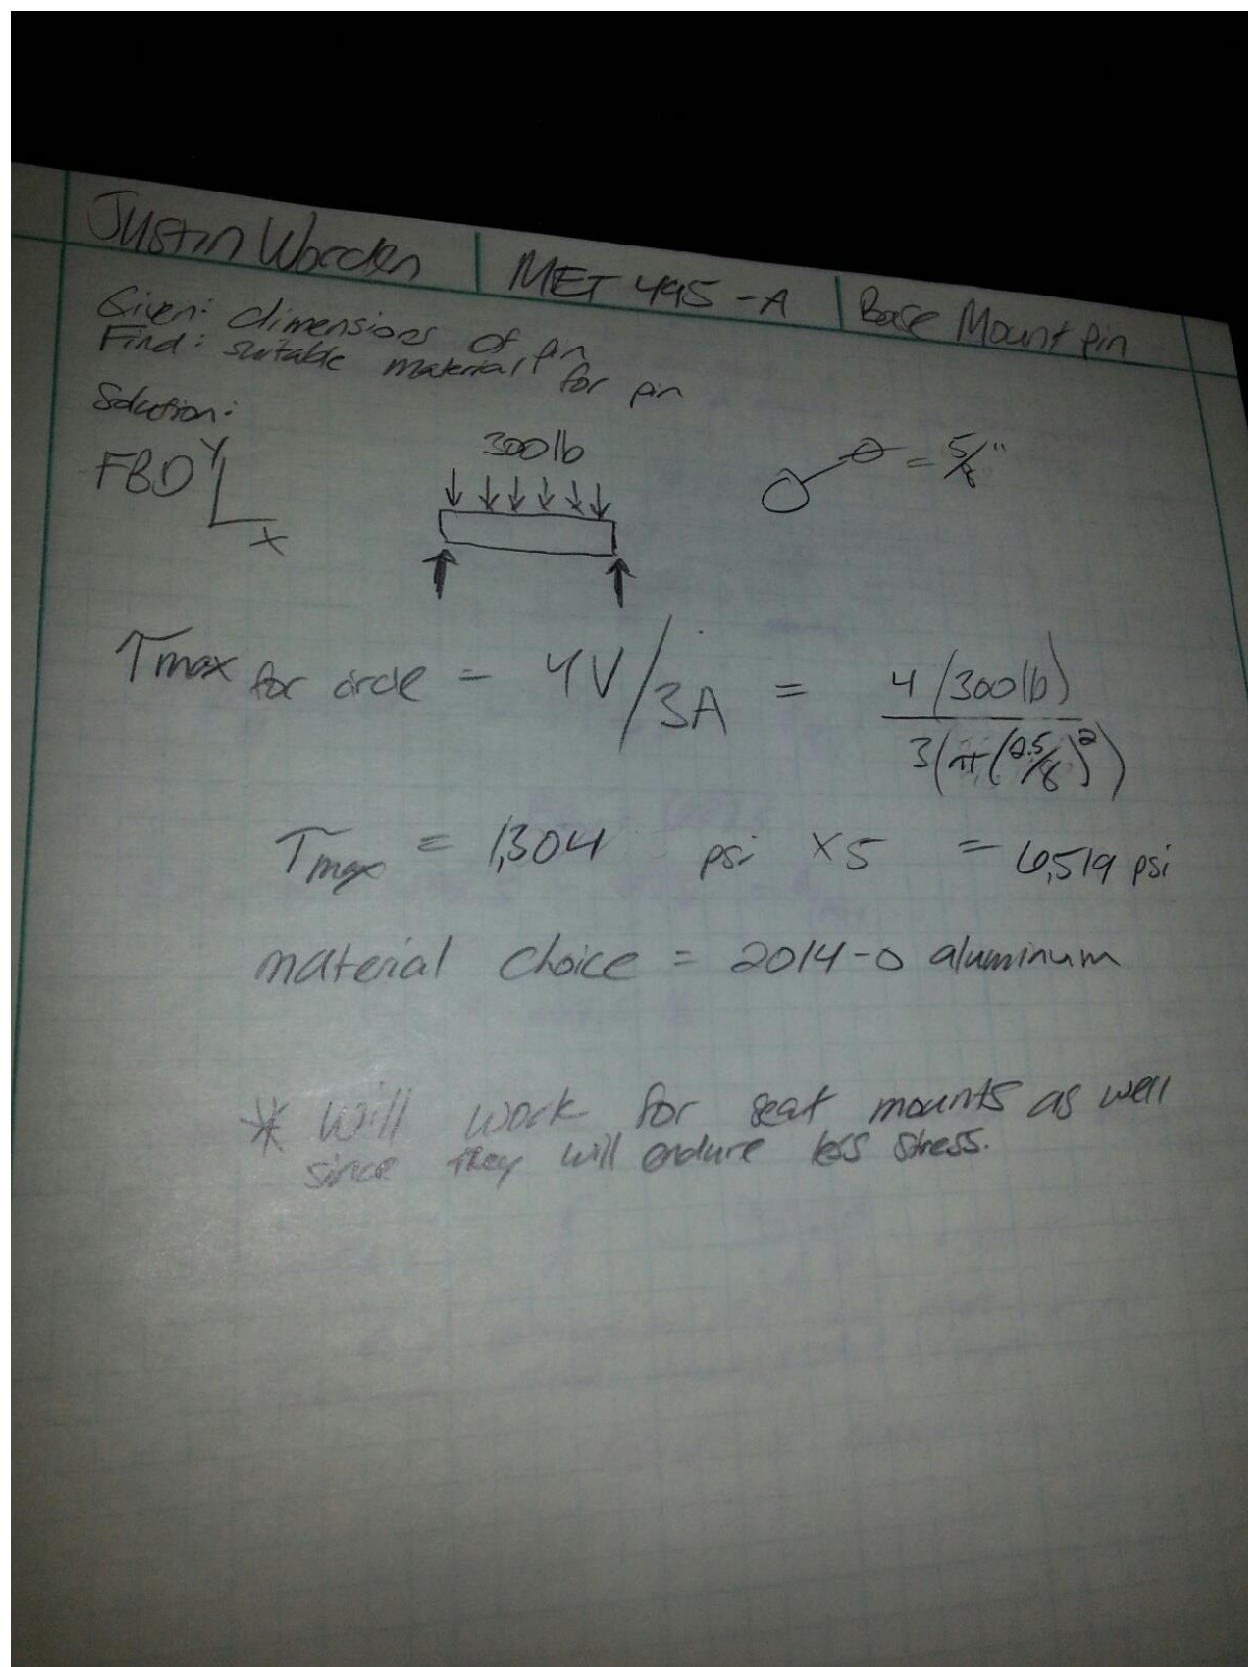 Justin Worden | MET 495-A | Base Mount pin
Given: dimensions of pin
Find: suitable material for pin
Solution:
FBD Y X
300 lb
Ø = 5/8"
τmax for circle = 4V/3A = 4(300lb) / 3(π(2.5/8)²)
τmax = 1,304 psi × 5 = 6,519 psi
material choice = 2014-0 aluminum
* Will work for seat mounts as well
since they will endure less stress.